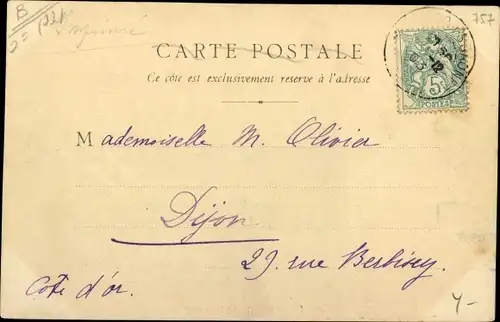 B
757
CARTE POSTALE
Ce côté est exclusivement réservé à l'adresse
5
POSTES
Mademoiselle M. Olivier
Dijon
29. rue Berbisey.
Côte d'or.
4-